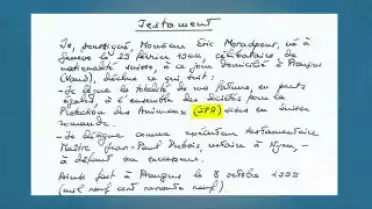 Testament
Je, soussigné, Monsieur Eric Moradpour, né à
Genève le 29 février 1944, célibataire de
nationalité suisse, à ce jour domicilié à Prangins
(Vaud), déclare ce qui suit :
- Je lègue la totalité de ma fortune, en parts
égales, à l'ensemble des Sociétés pour la
Protection des Animaux (SPA) sises en Suisse
romande.
- Je désigne comme exécuteur testamentaire
Maître Jean-Paul Dubois, notaire à Nyon, -
à défaut son successeur.
Ainsi fait à Prangins le 8 octobre 1999
(mil neuf cent nonante neuf).